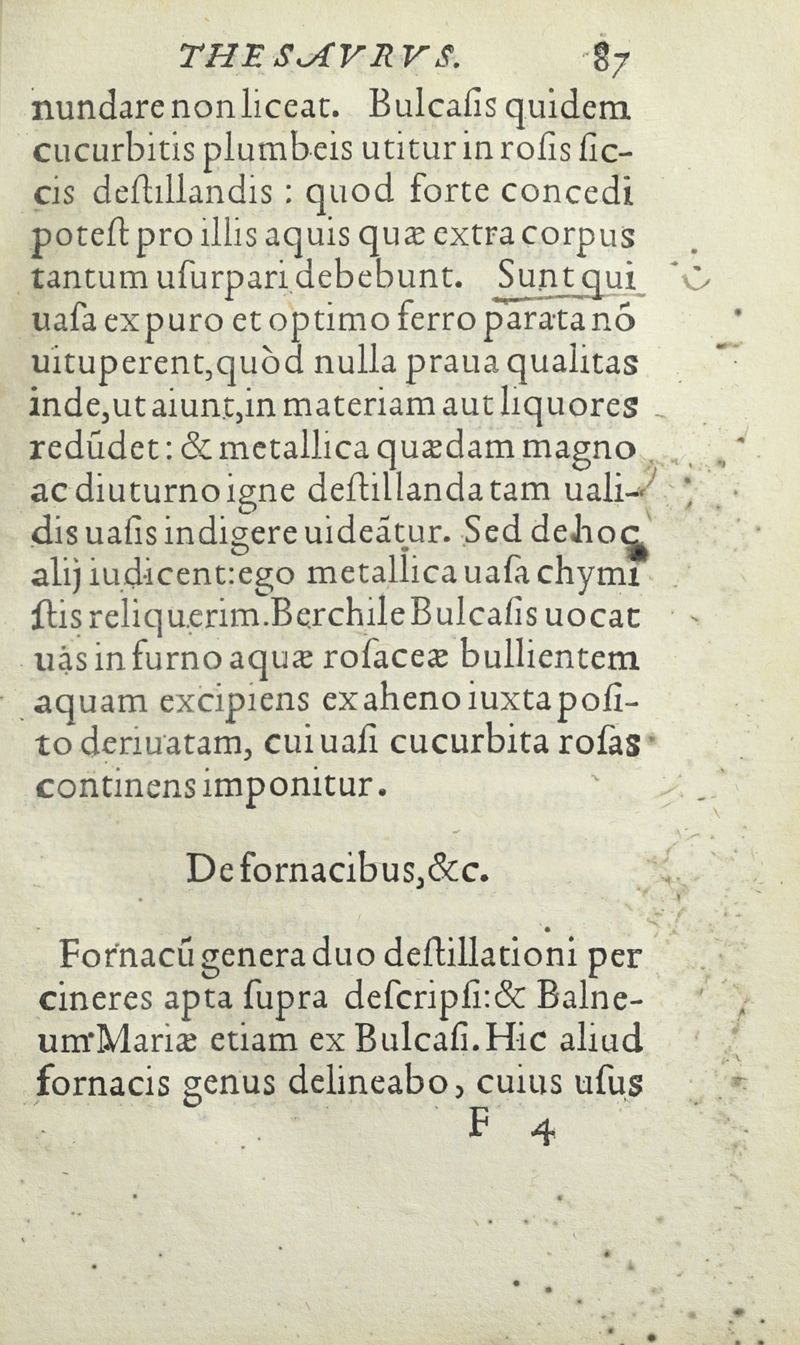 THESAVRVS. 87
nundare non liceat. Bulcaſis quidem
cucurbitis plumbeis utitur in roſis ſic-
cis deſtillandis : quod forte concedi
poteſt pro illis aquis quæ extra corpus
tantum uſurpari debebunt. Sunt qui
uaſa ex puro et optimo ferro parata nō
uituperent, quòd nulla praua qualitas
inde, ut aiunt, in materiam aut liquores
redūdet: & metallica quædam magno
ac diuturno igne deſtillanda tam uali-
dis uaſis indigere uideātur. Sed de hoc
alij iudicent: ego metallica uaſa chymi
ſtis reliquerim. Berchile Bulcaſis uocat
uás in furno aquæ roſaceæ bullientem
aquam excipiens ex aheno iuxta poſi-
to deriuatam, cui uaſi cucurbita roſas
continens imponitur.
De fornacibus, &c.
Fornacū genera duo deſtillationi per
cineres apta ſupra deſcripſi: & Balne-
um Mariæ etiam ex Bulcaſi. Hic aliud
fornacis genus delineabo, cuius uſus
F 4